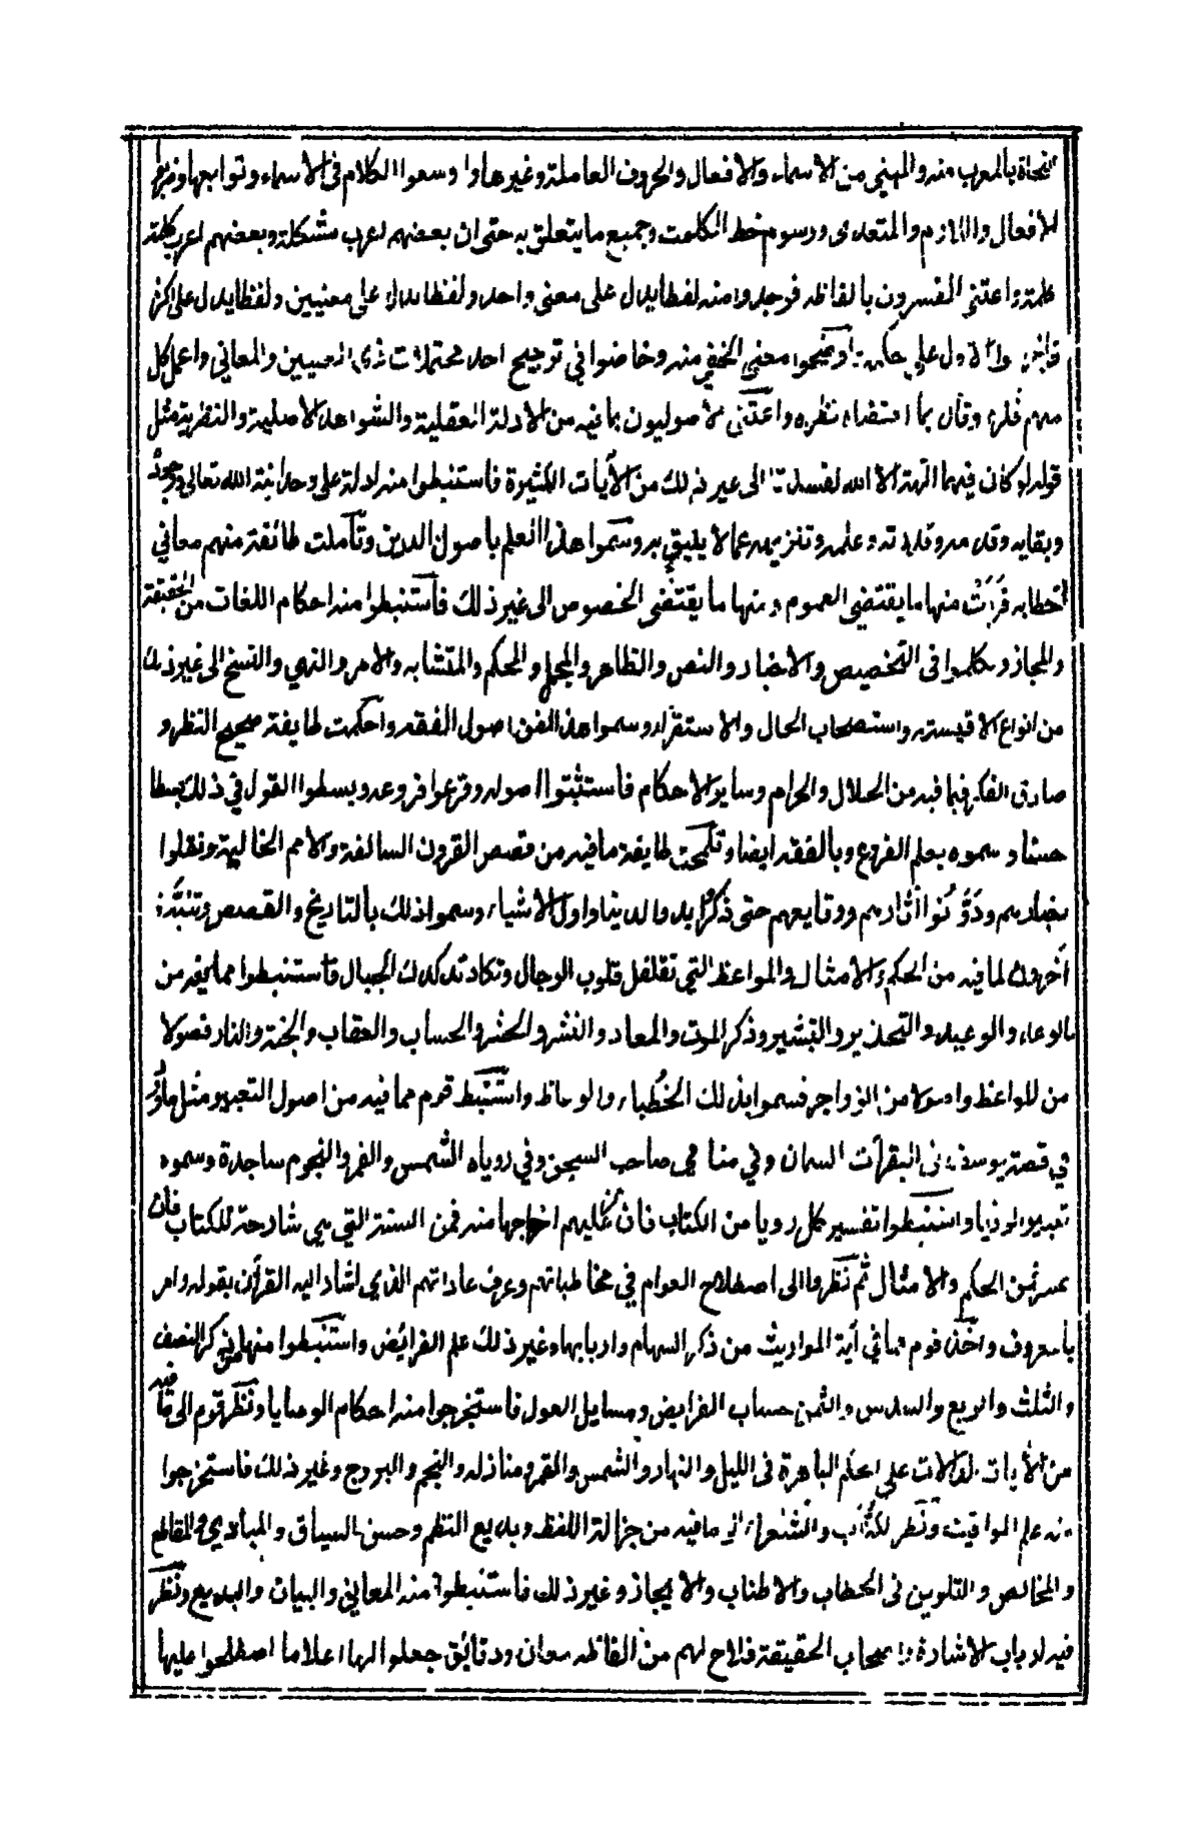 النحاة بالمعرب منه والمبني من الاسماء والافعال والحروف العاملة وغيرها واوسعوا الكلام في الاسماء وتوابعها وضروب
الافعال واللازم والمتعدى ورسوم خط الكلمت وجميع ما يتعلق به حتى ان بعضهم اعرب مشكله وبعضهم اعرب كلمة
كلمة واعتنى المفسرون بالفاظه فوجدوا منه لفظا يدل على معنى واحد ولفظا يدل على معنيين ولفظا يدل على اكثر
فاجروا الاول على حكمه واوضحوا معنى الخفي منه وخاضوا في ترجيح احد محتملات ذى المعنيين والمعاني واعمل كل
منهم فكره وقال بما اقتضاه نظره واعتنى الاصوليون بما فيه من الادلة العقلية والشواهد الاصلية والنظرية مثل
قوله لو كان فيهما الهة الا الله لفسدتا الى غير ذلك من الآيات الكثيرة فاستنبطوا منه ادلة على وحدانية الله تعالى ووجوده
وبقايه وقدمه وقدرته وعلمه وتنزيهه عما لا يليق به وسموا هذا العلم باصول الدين وتأملت طائفة منهم معاني
خطابه فرأت منها ما يقتضى العموم ومنها ما يقتضى الخصوص الى غير ذلك فاستنبطوا منه احكام اللغات من الحقيقة
والمجاز وتكلموا فى التخصيص والاخبار والنص والظاهر والمجمل والمحكم والمتشابه والامر والنهي والنسخ الى غير ذلك
من انواع الاقيسة واستصحاب الحال والاستقراء وسموا هذا الفن اصول الفقه واحكمت طايفة صحيح النظر و
صادق الفكر فيما فيه من الحلال والحرام وساير الاحكام فاستثبتوا اصوله وفرعوا فروعه وبسطوا القول في ذلك بسطا
حسنا وسموه بعلم الفروع وبالفقه ايضا وتلمحت طايفة ما فيه من قصص القرون السالفة والامم الخالية ونقلوا
اخبارهم ودونوا آثارهم ووقايعهم حتى ذكروا بدء الدنيا واول الاشياء وسموا ذلك بالتاريخ والقصص وتنبه
آخرون لما فيه من الحكم والامثال والمواعظ التي تقلقل قلوب الرجال وتكاد تدكدك الجبال فاستنبطوا مما فيه من
الوعد والوعيد والتحذير والتبشير وذكر الموت والمعاد والنشر والحشر والحساب والعقاب والجنة والنار فصولا
من المواعظ واصولا من الزواجر فسموا بذلك الخطباء والوعاظ واستنبط قوم مما فيه من اصول التعبير مثل ما ورد
في قصة يوسف فى البقرات السمان وفي منامى صاحب السجن وفي روياه الشمس والقمر والنجوم ساجدة وسموه
تعبير الرؤيا واستنبطوا تفسير كل رويا من الكتاب فان عز عليهم اخراجها منه فمن السنة التي هي شارحة للكتاب فان
عسر فمن الحكم والامثال ثم نظروا الى اصطلاح العوام في مخاطباتهم وعرف عاداتهم الذي اشار اليه القرآن بقوله وامر
بالمعروف واخذ قوم مما في آية المواريث من ذكر السهام واربابها وغير ذلك علم الفرائض واستنبطوا منها من ذكر النصف
والثلث والربع والسدس والثمن حساب الفرايض ومسايل العول فاستخرجوا منه احكام الوصايا ونظر قوم الى ما فيه
من الآيات الدالات على الحكم الباهرة فى الليل والنهار والشمس والقمر ومنازله والنجم والبروج وغير ذلك فاستخرجوا
منه علم المواقيت ونظر الكتاب والشعراء الى ما فيه من جزالة اللفظ وبديع النظم وحسن السياق والمبادي والمقاطع
والمخالص والتلوين فى الخطاب والاطناب والايجاز وغير ذلك فاستنبطوا منه المعاني والبيان والبديع ونظر
فيه ارباب الاشارة واصحاب الحقيقة فلاح لهم من الفاظه معان ودقائق جعلوا لها اعلاما اصطلحوا عليها